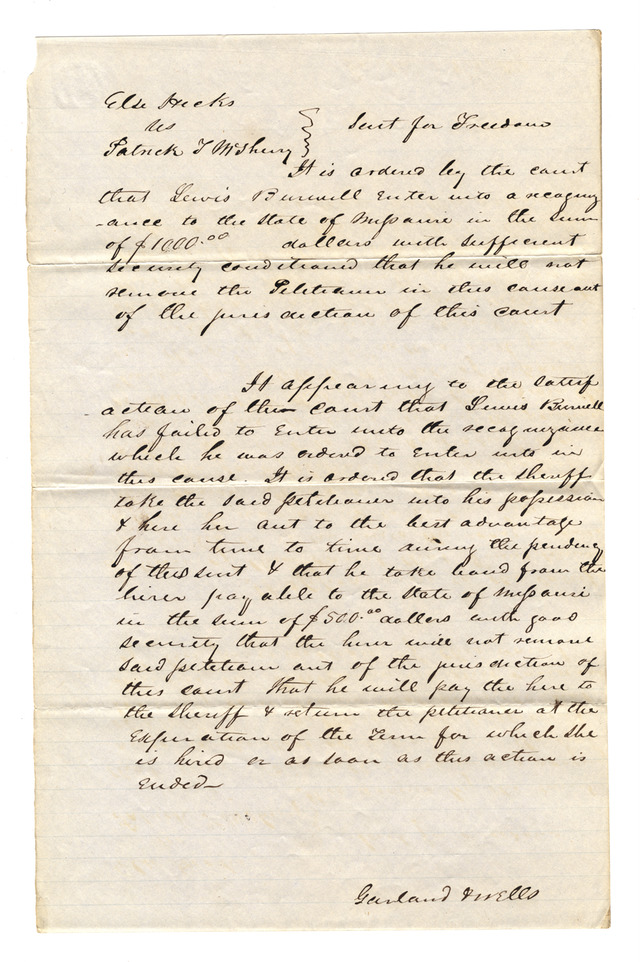 Else Hicks
vs
Patrick T McSherry } Suit for Freedom
It is ordered by the court
that Lewis Burwell Enter into a recogniz
-ance to the State of Missouri in the sum
of $1000.00 dollars with sufficient
security conditioned that he will not
remove the Petitioner in this cause out
of the jurisdiction of this court
It appearing to the satisf
action of the court that Lewis Burwell
has failed to Enter into the recognizance
which he was ordered to Enter into in
this cause. It is ordered that the sheriff
take the said petitioner into his possession
& hire her out to the best advantage
from time to time during the pendency
of this suit & that he take bond from the
hirer payable to the State of Missouri
in the sum of $500.00 dollars with good
security that the hirer will not remove
said petitioner out of the jurisdiction of
this court that he will pay the hire to
the sheriff & return the petitioner at the
Expiration of the Term for which she
is hired or as soon as this action is
Ended
Garland & Wells